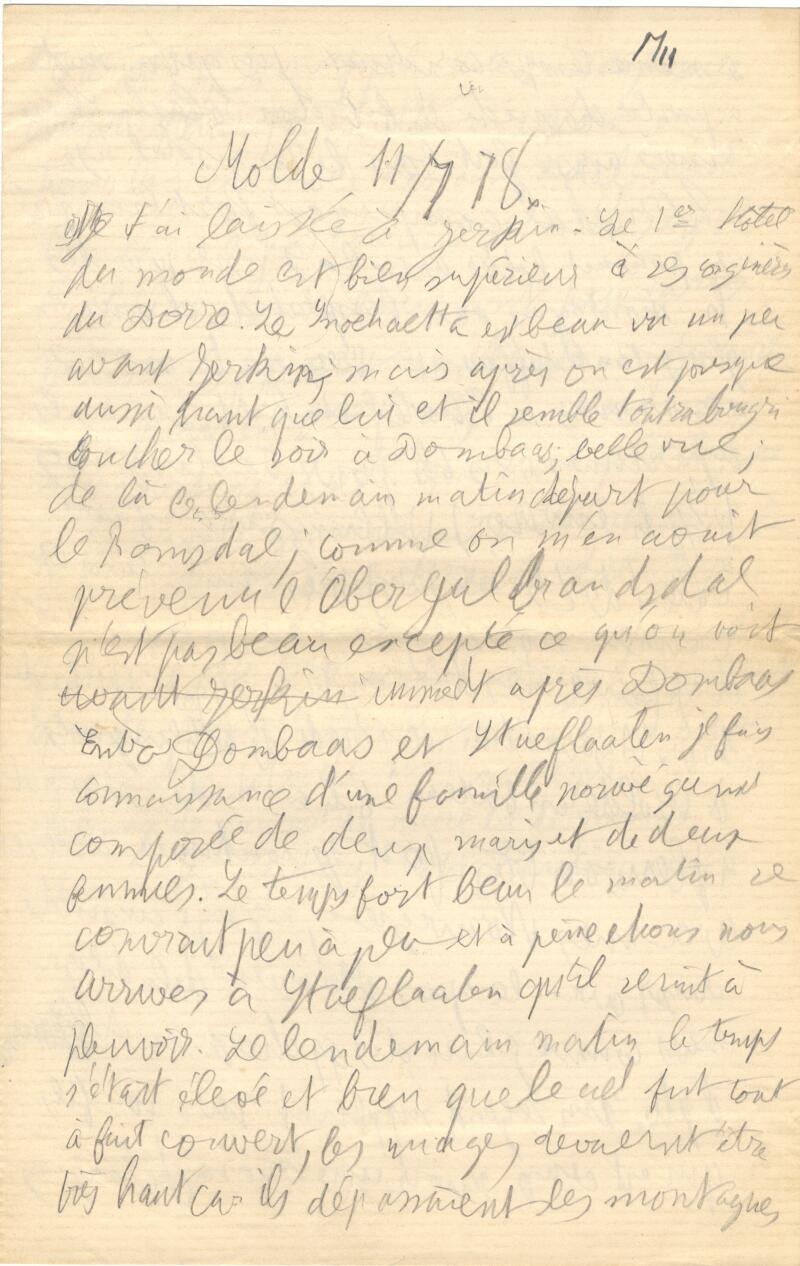 Molde 11/7 78
Je t'ai laissé à Jerkin. Le 1er Hotel
du monde est bien supérieur à ses congénères
du Dovre. Le Snoehaetta est beau vu un peu
avant Jerkin; mais après on est presque
aussi haut que lui et il semble tout rabougri
Coucher le soir à Dombaas; belle vue;
de là le lendemain matin départ pour
le Romsdal; comme on m'en avait
prévenu l'Ober Gulbrandsdal
n'est pas beau excepté ce qu'on voit
avant Jerkin immédt après Dombaas
Entre Dombaas et Stueflaaten je fais
connaissance d'une famille norwégienne
composée de deux maris et de deux
femmes. Le temps fort beau le matin se
couvrait peu à peu et à peine étions nous
arrives à Stueflaaten qu'il se mit à
pleuvoir. Le lendemain matin le temps
s'était élevé et bien que le ciel fut tout
à fait couvert, les nuages devaient être
très haut car ils dépassaient les montagnes